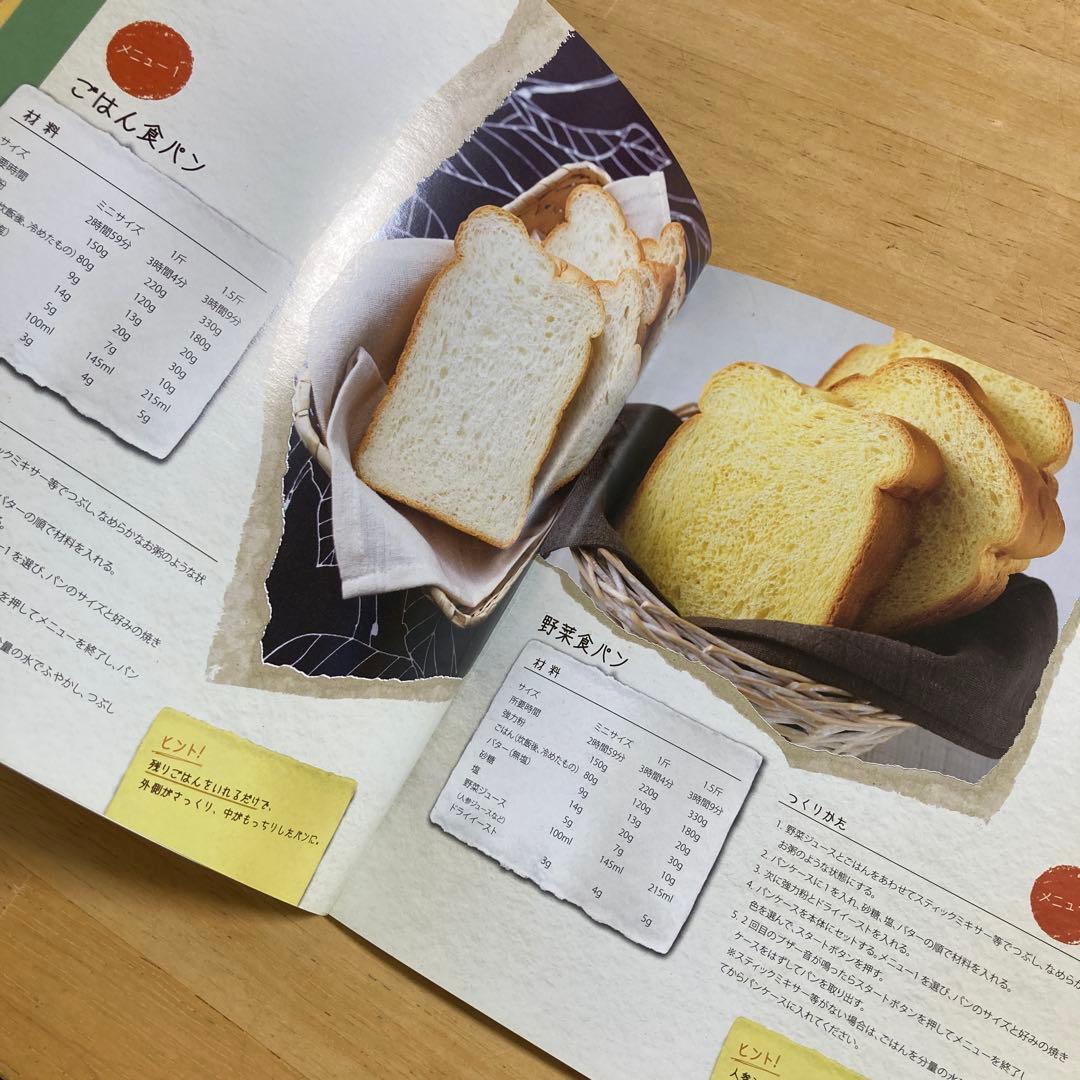 メニュー1
ごはん食パン
材料
サイズ ミニサイズ 1斤 1.5斤
要時間 2時間59分 3時間4分 3時間9分
粉 150g 220g 330g
炊飯後、冷めたもの) 80g 120g 180g
塩) 9g 13g 20g
14g 20g 30g
5g 7g 10g
100ml 145ml 215ml
3g 4g 5g
ックミキサー等でつぶし、なめらかなお粥のような状
バターの順で材料を入れる。
る。
ー1を選び、パンのサイズと好みの焼き
を押してメニューを終了し、パン
量の水でふやかし、つぶし
ヒント!
残りごはんをいれるだけで、
外側がさっくり、中がもっちりしたパンに。
野菜食パン
材料
サイズ ミニサイズ 1斤 1.5斤
所要時間 2時間59分 3時間4分 3時間9分
強力粉 150g 220g 330g
ごはん(炊飯後、冷めたもの) 80g 120g 180g
バター(無塩) 9g 13g 20g
砂糖 14g 20g 30g
塩 5g 7g 10g
野菜ジュース 100ml 145ml 215ml
(人参ジュースなど)
ドライイースト 3g 4g 5g
つくりかた
1. 野菜ジュースとごはんをあわせてスティックミキサー等でつぶし、なめらか
お粥のような状態にする。
2. パンケースに1を入れ、砂糖、塩、バターの順で材料を入れる。
3. 次に強力粉とドライイーストを入れる。
4. パンケースを本体にセットする。メニュー1を選び、パンのサイズと好みの焼き
色を選んで、スタートボタンを押す。
5. 2回目のブザー音が鳴ったらスタートボタンを押してメニューを終了し
ケースをはずしてパンを取り出す。
※スティックミキサー等がない場合は、ごはんを分量の水
てからパンケースに入れてください。
メニュー
ヒント!
人参